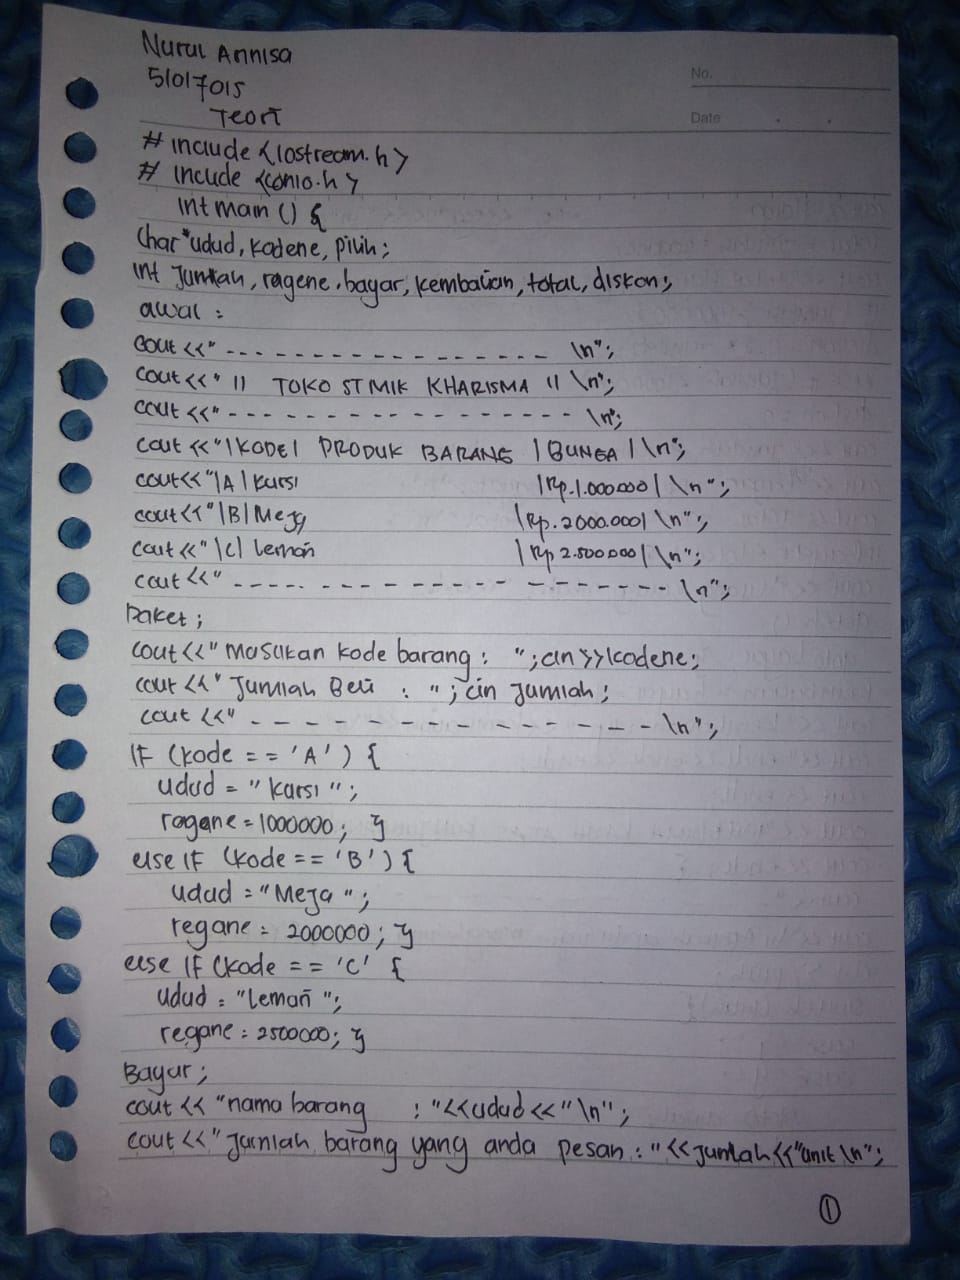 Nurul Annisa
No.
51017015
Teori
Date
# include <iostream.h>
# include <conio.h>
int main () {
Char *udud, kodene, pilih;
int Jumlah, ragene, bayar, kembalian, total, diskon;
awal :
cout <<" - - - - - - - - - - - - - - - - - \n";
cout <<" || TOKO STMIK KHARISMA || \n";
cout <<" - - - - - - - - - - - - - - - - - \n";
cout <<"|KODE| PRODUK BARANG |BUNGA|\n";
cout<<"|A|kursi |Rp.1.000.000| \n";
cout<<"|B|Meja |Rp.2000.000| \n";
cout <<"|C| lemari |Rp 2.500.000|\n";
cout <<" - - - - - - - - - - - - - - - - - - - \n";
Paket;
cout <<"masukan kode barang : ";cin>>kodene;
cout <<" Jumlah Beli : "; cin Jumlah;
cout <<" - - - - - - - - - - - - - - - \n";
IF (kode == 'A') {
udud = "kursi";
ragane = 1000000; }
else IF (kode == 'B') {
udud = "Meja";
regane = 2000000; }
else IF (kode == 'C' {
udud = "lemari";
regane = 2500000; }
Bayar;
cout << "nama barang : "<<udud<<"\n";
cout <<"Jumlah barang yang anda pesan : "<<jumlah<<"unit \n";
1